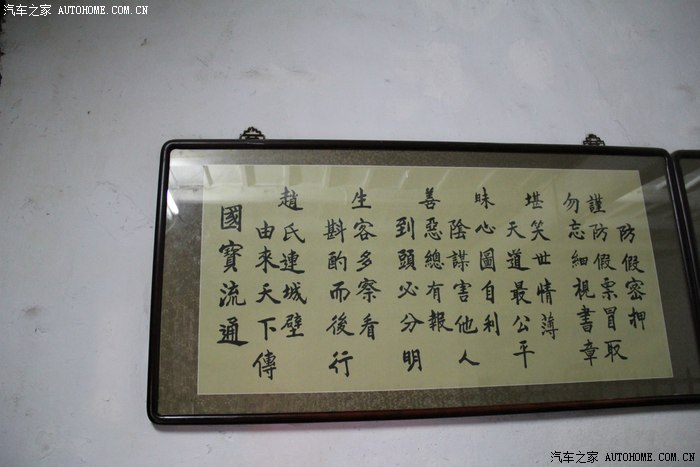 汽车之家 AUTOHOME.COM.CN
防假密押
謹防假票冒取
勿忘細視書章
堪笑世情薄
天道最公平
昧心圖自利
陰謀害他人
善惡總有報
到頭必分明
生客多察看
斟酌而後行
趙氏連城壁
由來天下傳
國寶流通
汽车之家 AUTOHOME.COM.CN